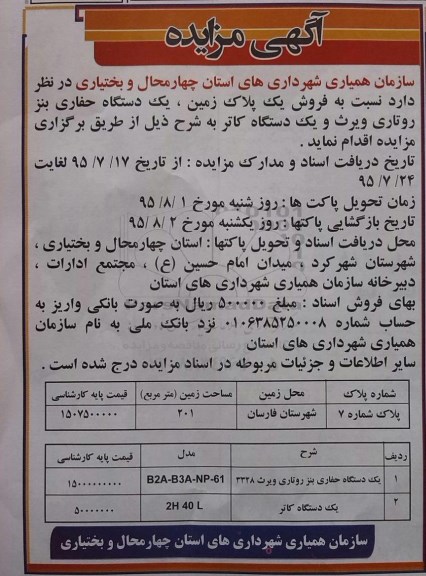 آگهی مزایده
سازمان همیاری شهرداری های استان چهارمحال و بختیاری در نظر
دارد نسبت به فروش یک پلاک زمین ، یک دستگاه حفاری بنز
روتاری ویرث و یک دستگاه کاتر به شرح ذیل از طریق برگزاری
مزایده اقدام نماید .
تاریخ دریافت اسناد و مدارک مزایده : از تاریخ ۱۷/ ۷/ ۹۵ لغایت
۲۴/ ۷/ ۹۵
زمان تحویل پاکت ها : روز شنبه مورخ ۱ /۸/ ۹۵
تاریخ بازگشایی پاکتها : روز یکشنبه مورخ ۲ /۸/ ۹۵
محل دریافت اسناد و تحویل پاکتها : استان چهارمحال و بختیاری ،
شهرستان شهرکرد ، میدان امام حسین (ع) ، مجتمع ادارات ،
دبیرخانه سازمان همیاری شهرداری های استان
بهای فروش اسناد : مبلغ ۵۰۰۰۰۰ ریال به صورت بانکی واریز به
حساب شماره ۰۱۰۶۳۸۵۲۵۰۰۰۸ نزد بانک ملی به نام سازمان
همیاری شهرداری های استان
سایر اطلاعات و جزئیات مربوطه در اسناد مزایده درج شده است .
شماره پلاک محل زمین مساحت زمین (متر مربع) قیمت پایه کارشناسی
پلاک شماره ۷ شهرستان فارسان ۲۰۱ ۱۵۰۷۵۰۰۰۰۰
ردیف شرح مدل قیمت پایه کارشناسی
۱ یک دستگاه حفاری بنز روتاری ویرث ۳۳۲۸ B2A-B3A-NP-61 ۱۵۰۰۰۰۰۰۰۰۰
۲ یک دستگاه کاتر 2H 40 L ۵۰۰۰۰۰۰۰
سازمان همیاری شهرداری های استان چهارمحال و بختیاری